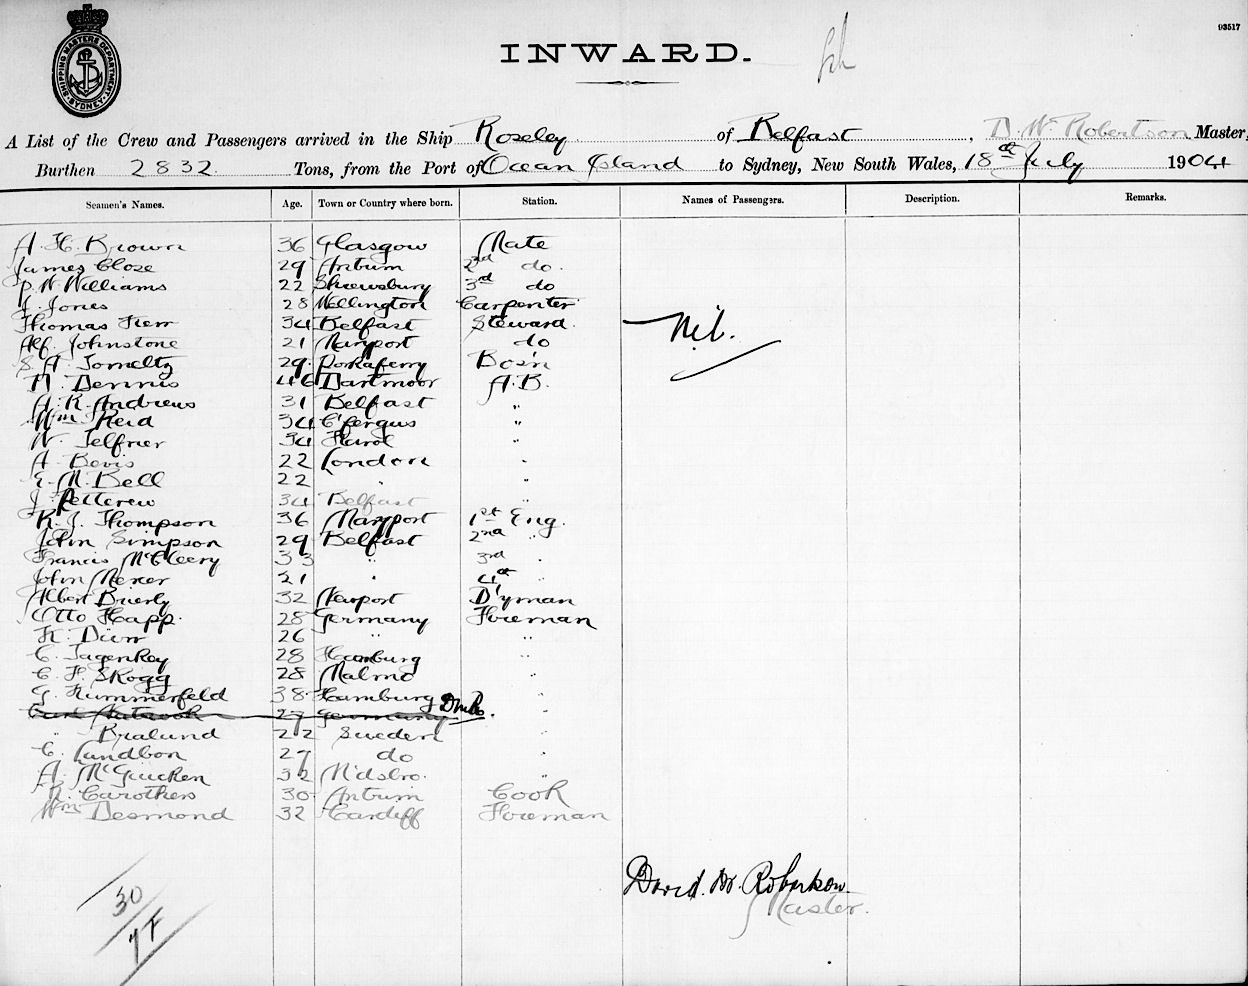 93517
SHIPPING MASTERS DEPARTMENT SYDNEY
INWARD.
A List of the Crew and Passengers arrived in the Ship Roseley of Belfast, D. W. Robertson Master,
Burthen 2832 Tons, from the Port of Ocean Island to Sydney, New South Wales, 18th July 1904
Seamen's Names. Age. Town or Country where born. Station. Names of Passengers. Description. Remarks.
A. H. Brown 36 Glasgow Mate
James Close 29 Antrim 2nd do.
P. W. Williams 22 Shrewsbury 3rd do
J. Jones 28 Wellington Carpenter
Thomas Kerr 34 Belfast Steward.
Nil.
Alf. Johnstone 21 Maryport do
S. A. 29 Portaferry Bos'n
H. Dennis 46 Dartmoor A.B.
A. R. Andrews 31 Belfast "
Wm Reid 34 C'fergus "
W. 34 "
A. Bevis 22 London "
E. M. Bell 22 " "
J. Pettcrew 34 Belfast "
R. J. Thompson 36 Maryport 1st Eng.
John Simpson 29 Belfast 2nd "
Francis McCleery 33 " 3rd "
John Mercer 21 " 4th "
Albert Brierly 32 Newport D'yman
Otto Happ. 28 Germany Fireman
K. Durr 26 " "
C. Jagenkey 28 Hamburg "
C. F. Skogg 28 Malmo "
G. Kummerfeld 38 Hamburg "
Carl 27 Germany "
" Bralund 22 Sweden "
C. Lundbon 27 do "
A. McGucken 32 M'dsbro. "
R. Carothers 30 Antrim Cook
Wm Desmond 32 Cardiff Fireman
David. W. Robertson.
Master.
30